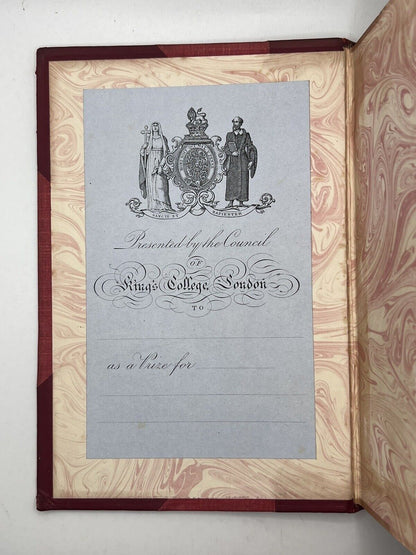 SANCTE ET SAPIENTER
Presented by the Council
OF
King's College, London
TO
as a Prize for